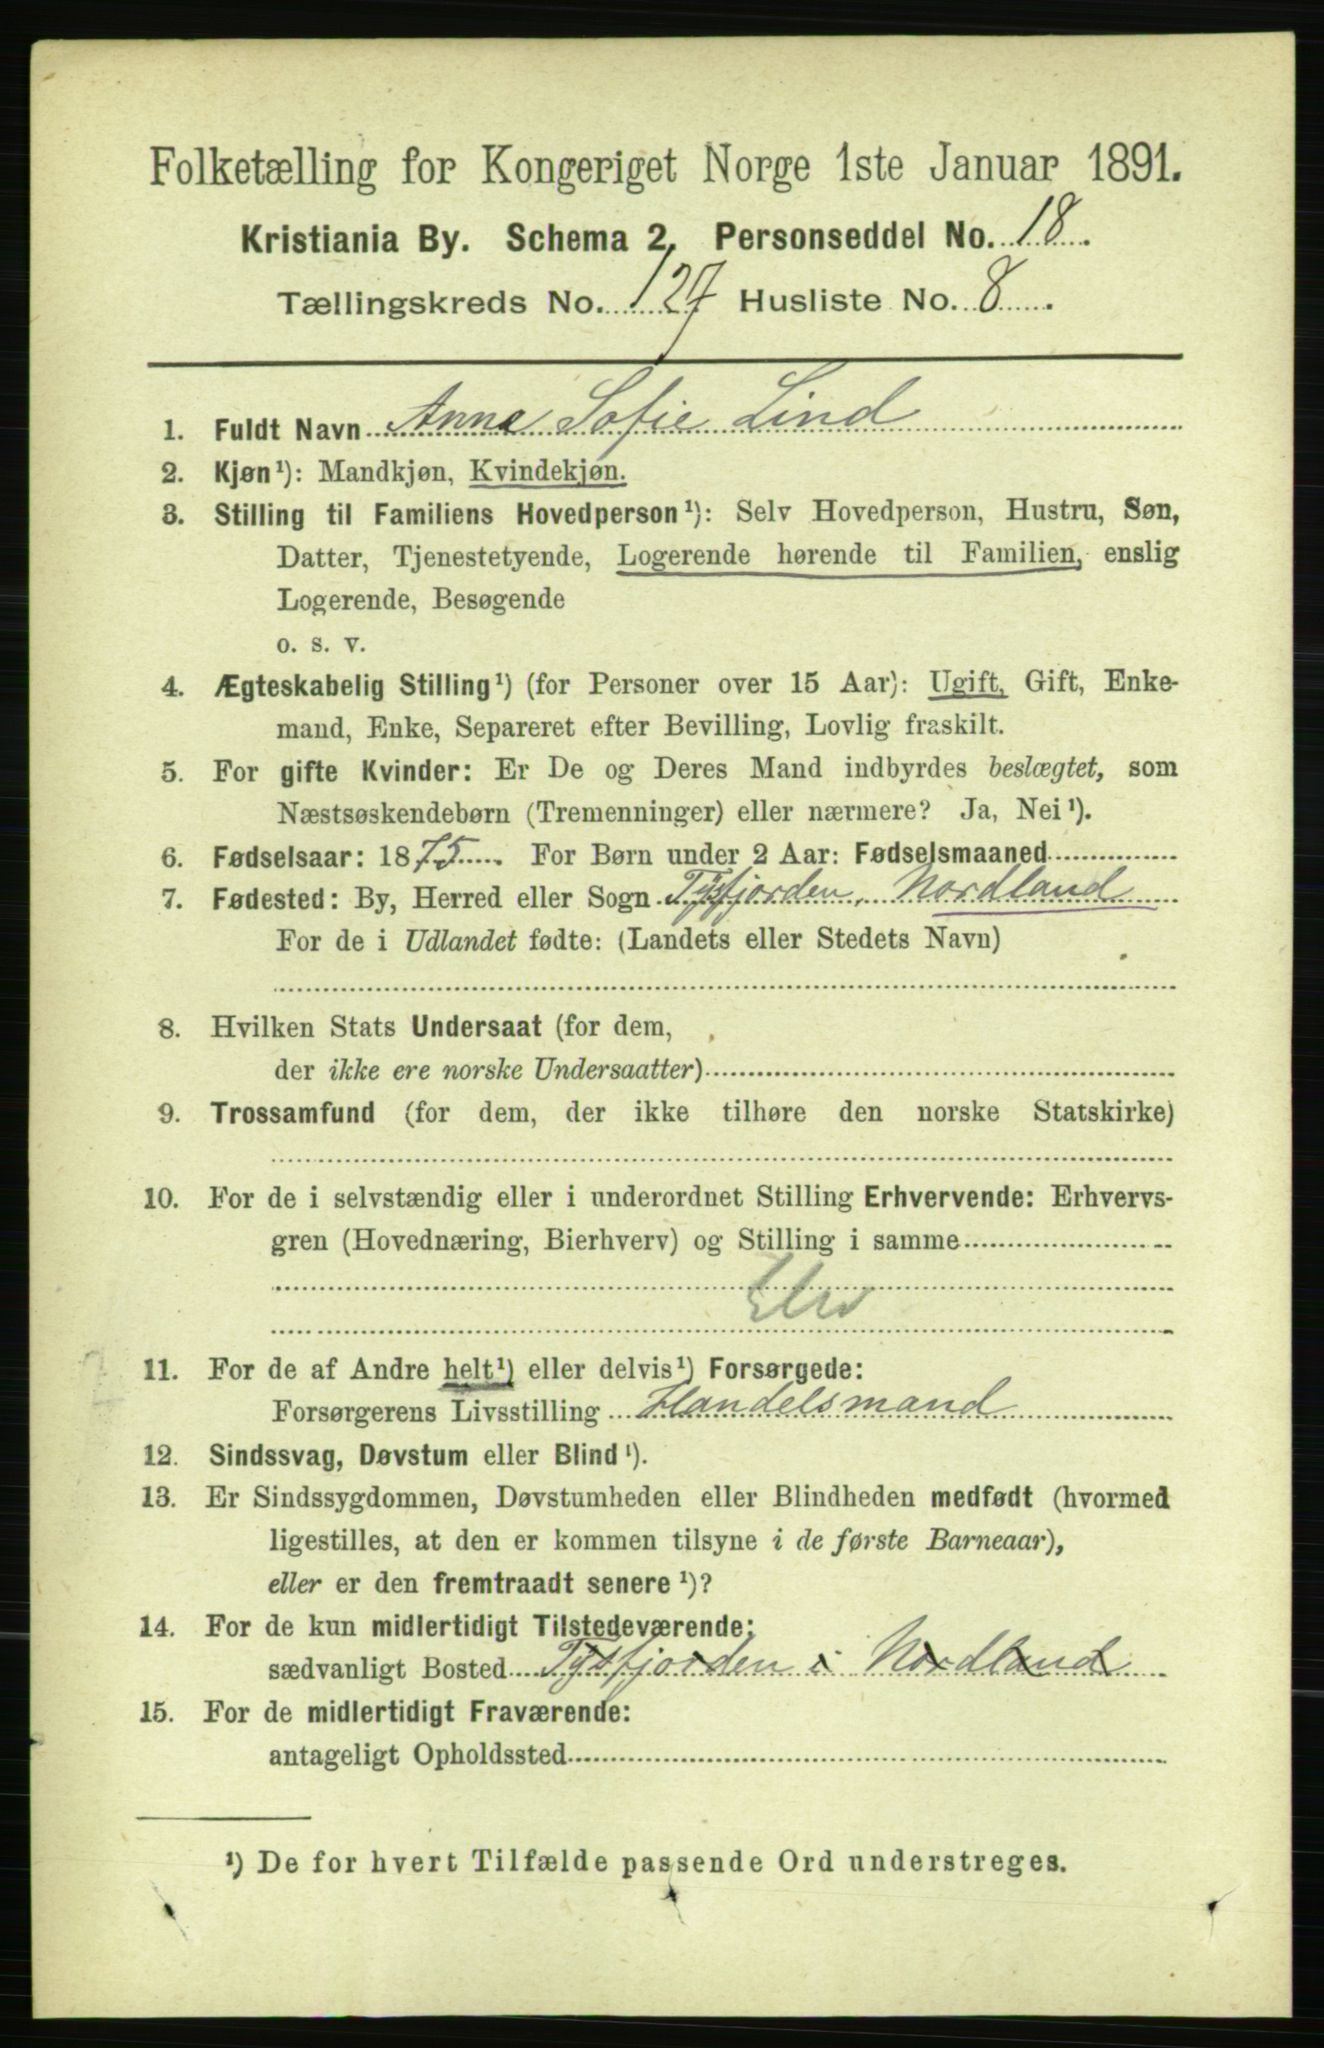 Folketælling for Kongeriget Norge 1ste Januar 1891.
Kristiania By. Schema 2. Personseddel No. 18.
Tællingskreds No. 127 Husliste No. 8.
1. Fuldt Navn Anna Sofie Lind
2. Kjøn¹): Mandkjøn, Kvindekjøn.
3. Stilling til Familiens Hovedperson¹): Selv Hovedperson, Hustru, Søn,
Datter, Tjenestetyende, Logerende hørende til Familien, enslig
Logerende, Besøgende
o. s. v.
4. Ægteskabelig Stilling¹) (for Personer over 15 Aar): Ugift, Gift, Enke-
mand, Enke, Separeret efter Bevilling, Lovlig fraskilt.
5. For gifte Kvinder: Er De og Deres Mand indbyrdes beslægtet, som
Næstsøskendebørn (Tremenninger) eller nærmere? Ja, Nei¹).
6. Fødselsaar: 1875. For Børn under 2 Aar: Fødselsmaaned
7. Fødested: By, Herred eller Sogn Tysfjorden, Nordland
For de i Udlandet fødte: (Landets eller Stedets Navn)
8. Hvilken Stats Undersaat (for dem,
der ikke ere norske Undersaatter)
9. Trossamfund (for dem, der ikke tilhøre den norske Statskirke)
10. For de i selvstændig eller i underordnet Stilling Erhvervende: Erhvervs-
gren (Hovednæring, Bierhverv) og Stilling i samme
Elev
11. For de af Andre helt¹) eller delvis¹) Forsørgede:
Forsørgerens Livsstilling Handelsmand
12. Sindssvag, Døvstum eller Blind¹).
13. Er Sindssygdommen, Døvstumheden eller Blindheden medfødt (hvormed
ligestilles, at den er kommen tilsyne i de første Barneaar),
eller er den fremtraadt senere¹)?
14. For de kun midlertidigt Tilstedeværende:
sædvanligt Bosted Tysfjorden i Nordland
15. For de midlertidigt Fraværende:
antageligt Opholdssted
¹) De for hvert Tilfælde passende Ord understreges.